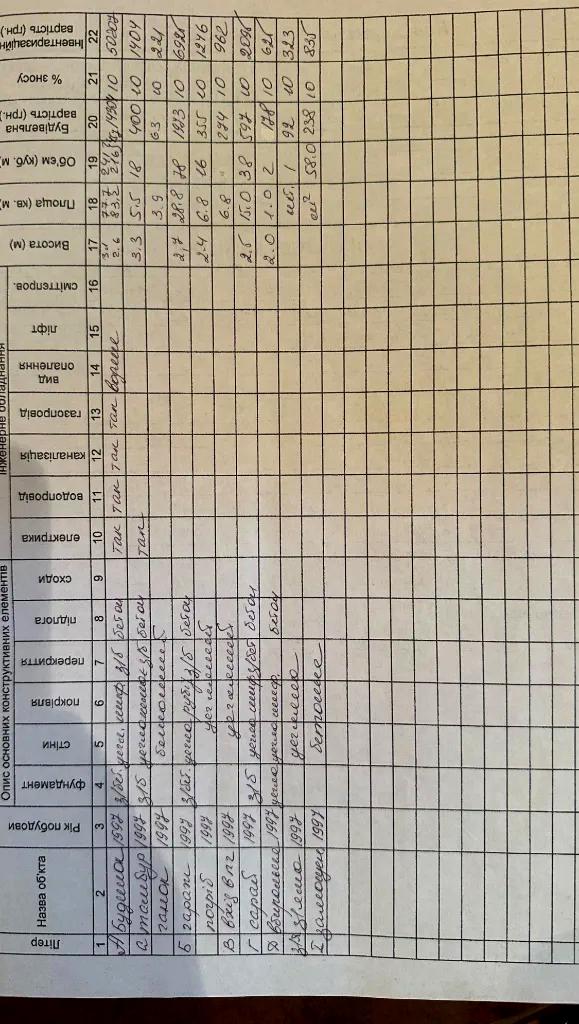 Опис основних конструктивних елементів
Інженерне обладнання
Літер Назва об'єкта Рік побудови фундамент стіни покрівля перекриття підлога сходи електрика водопровід каналізація газопровід вид опалення ліфт сміттєпров. Висота (м) Площа (кв. м) Об'єм (куб. м) Будівельна вартість (грн.) % зносу Інвентаризаційна вартість (грн.)
1 2 3 4 5 6 7 8 9 10 11 12 13 14 15 16 17 18 19 20 21 22
А будинок 1997 з/бет. цегл. шиф. з/б бетон так так так так 10
2.6 83.2
а тамбур 1997 з/б цегла з/б бетон так 3.3 5.5 18 400 10 1404
ганок 1997 3.9 63 10 221
Б гараж 1997 з/бет. цегла з/б бетон 2,7 28.8 78 10
погріб 1997 цегляний 2.4 6.8 16 355 10 1246
В вхід в пг 1997 цегляний 6.8 274 10 962
Г сарай 1997 з/б цегла шиф з/бет бетон 2.5 15.0 38 597 10
Д вбиральня 1997 цегла цегла шиф. бетон 2.0 1.0 2 178 10 625
1997 1 92 10 323
І замощен. 1997 58.0 238 10 835